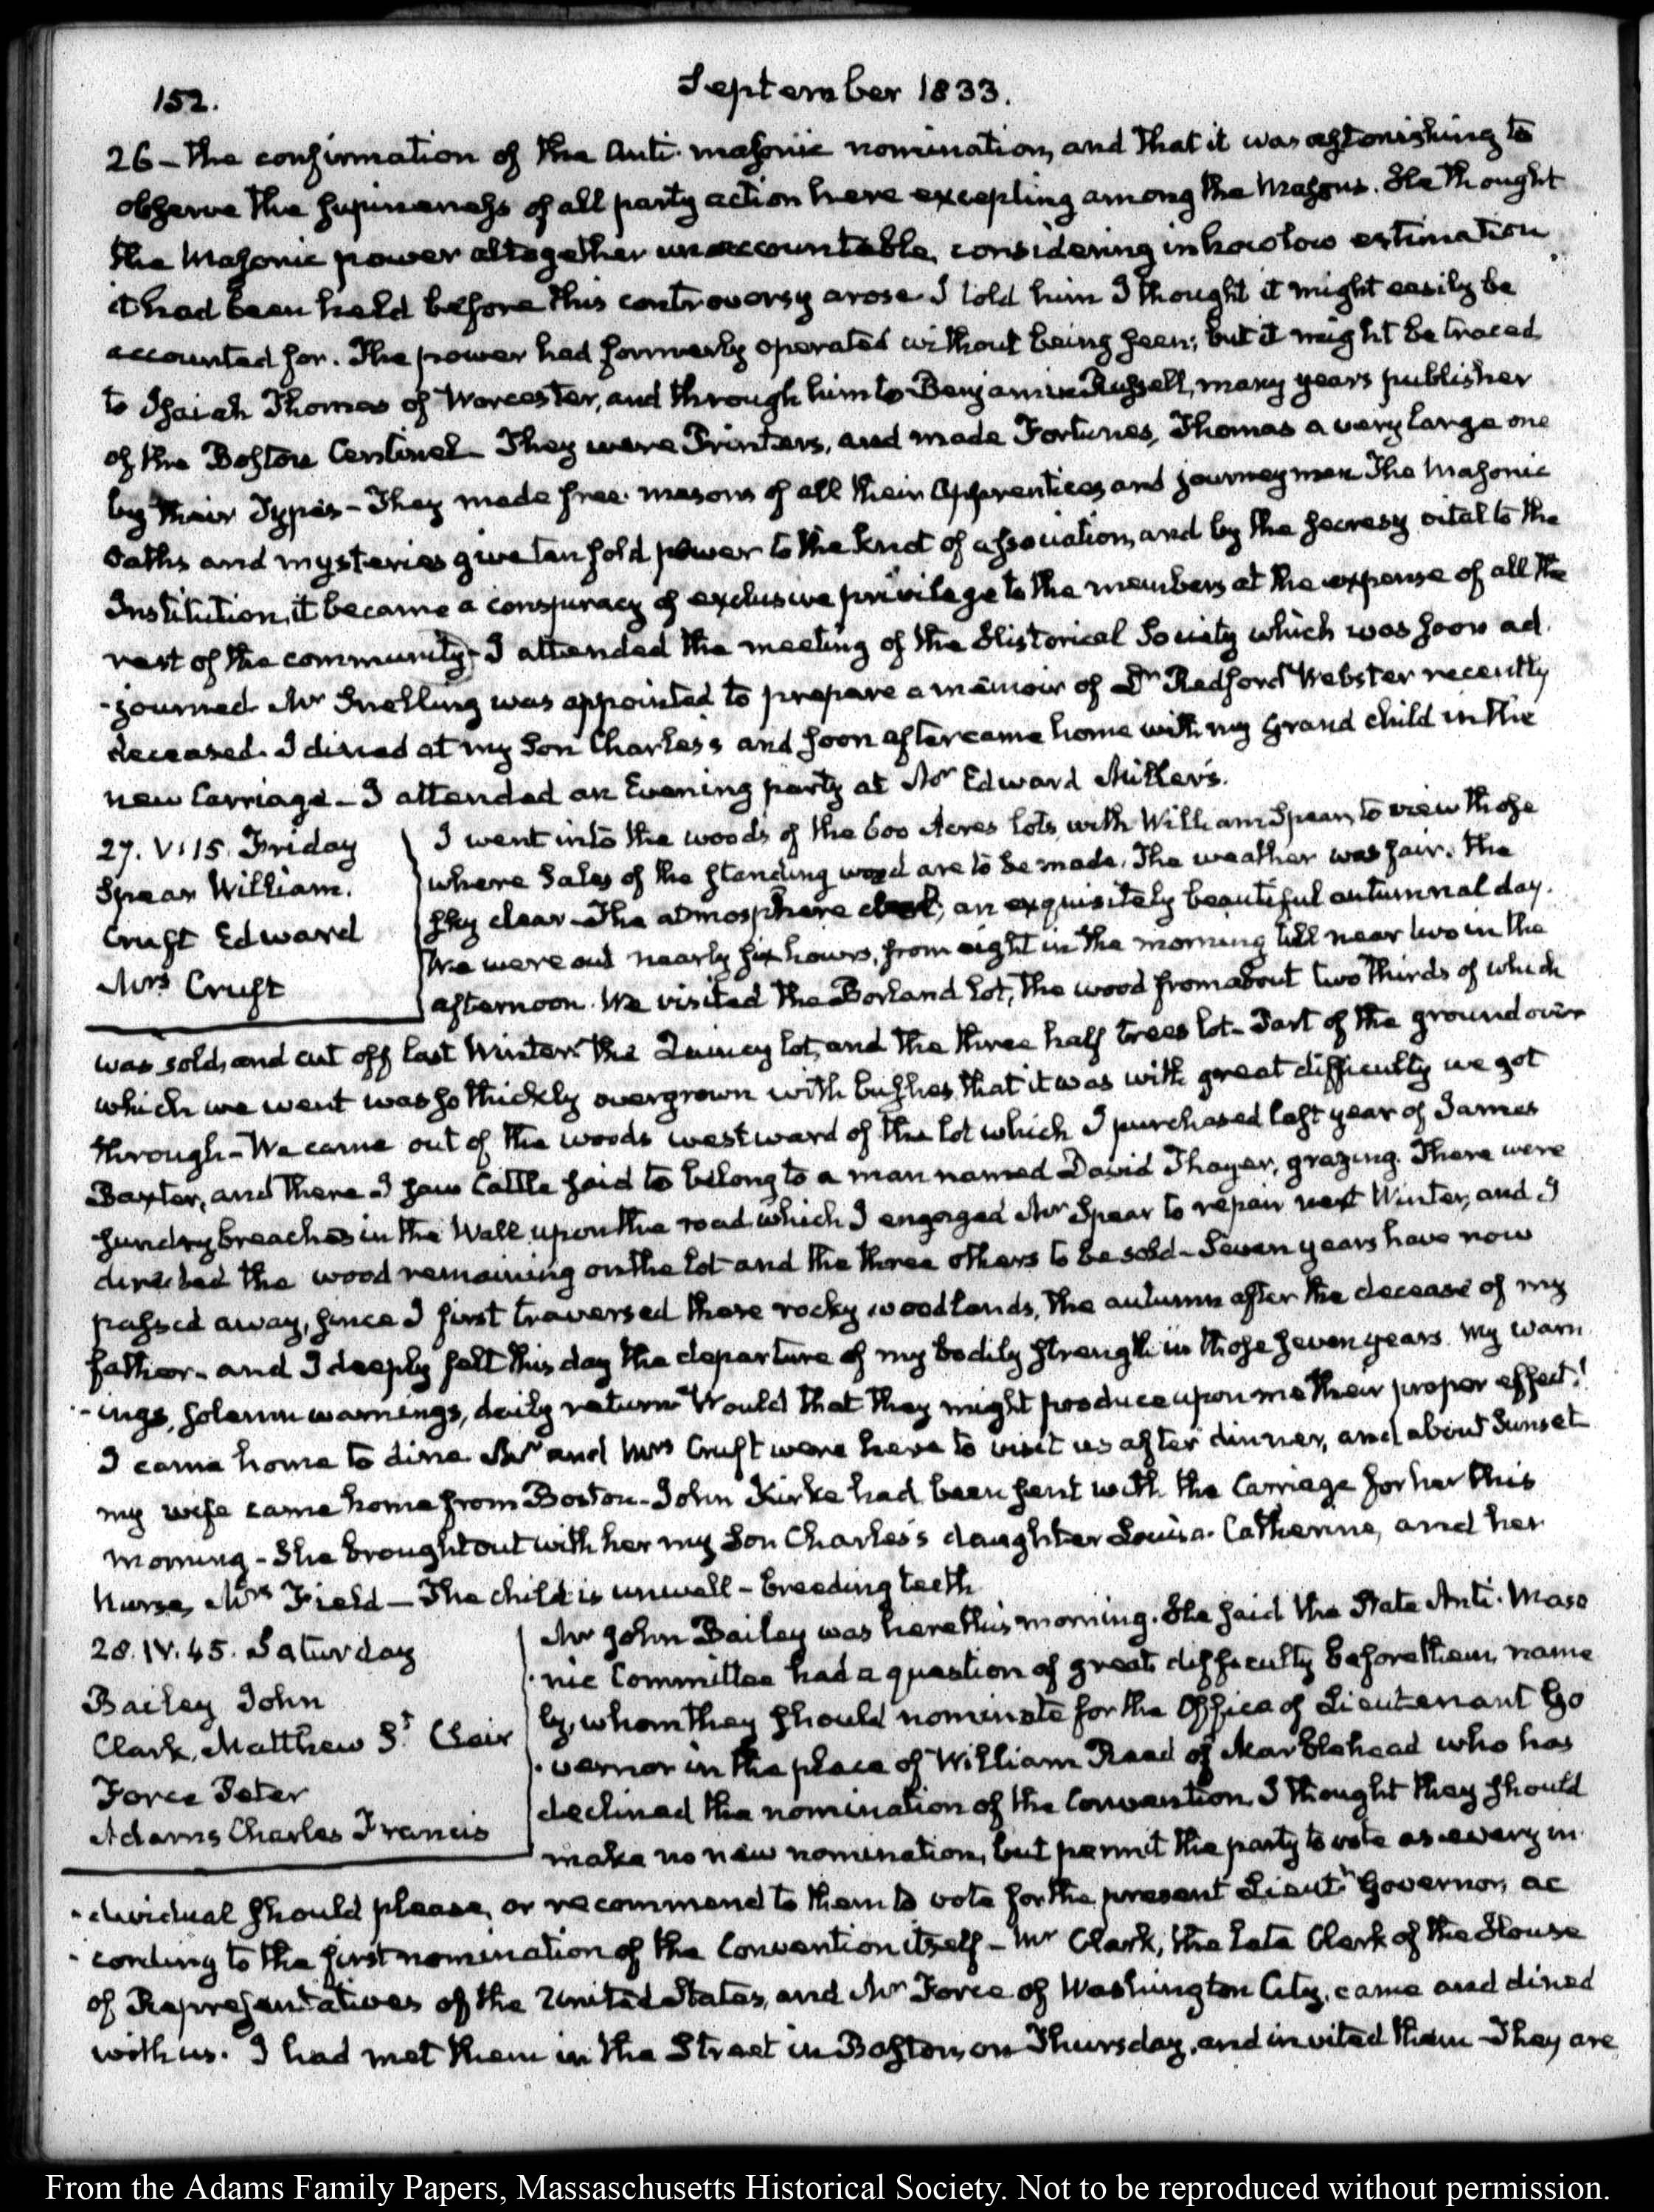 152.
September 1833.
26 – the confirmation of the Anti-masonic nomination, and that it was astonishing to
observe the supineness of all party action here excepting among the Masons. He thought
the Masonic power altogether unaccountable, considering in how low estimation
it had been held before this controversy arose. I told him I thought it might easily be
accounted for. The power had formerly operated without being seen; but it might be traced
to Isaiah Thomas of Worcester, and through him to Benjamin Russell, many years publisher
of the Boston Centinel. They were Printers, and made Fortunes, Thomas a very large one
by their Types – They made free-masons of all their Apprentices and journeymen. The Masonic
Oaths and mysteries give tenfold power to the knot of association, and by the secresy vital to the
Institution, it became a conspiracy of exclusive privilege to the members at the expense of all the
rest of the community – I attended the meeting of the Historical Society which was soon ad-
-journed. Mr Snelling was appointed to prepare a memoir of Dr Redford Webster recently
deceased. I dined at my Son Charles's and soon after came home with my Grand child in the
new Carriage – I attended an Evening party at Mr Edward Miller's.
27. V:15. Friday
Spear William.
Cruft Edward
Mrs Cruft
I went into the woods of the 600 Acres lots, with William Spear, to view those
where Sales of the standing wood are to be made. The weather was fair. The
sky clear – The atmosphere ; an exquisitely beautiful autumnal day.
We were out nearly six hours, from eight in the morning till near two in the
afternoon. We visited the Borland lot, the wood from about two thirds of which
was sold, and cut off last Winter. the Quincy lot, and the three half trees lot – Part of the ground over
which we went was so thickly overgrown with bushes, that it was with great difficulty we got
through – We came out of the woods westward of the lot which I purchased last year of James
Baxter, and there I saw Cattle said to belong to a man named David Thayer, grazing. There were
sundry breaches in the Wall, upon the road which I engaged Mr Spear to repair next Winter, and I
directed the wood remaining on the lot and the three others to be sold – Seven years have now
passed away, since I first traversed these rocky woodlands, the autumn after the decease of my
father – and I deeply felt this day the departure of my bodily strength in those seven years. My warn-
-ings, solemn warnings, daily return. Would that they might produce upon me their proper effect!
I came home to dine. Mr and Mrs Cruft were here to visit us after dinner, and about Sunset
my wife came home from Boston – John Kirke had been sent with the Carriage for her this
morning – She brought out with her my Son Charles's daughter Louisa-Catherine, and her
Nurse, Mrs Field – The child is unwell – breeding teeth
28. IV. 45. Saturday
Bailey John
Clark, Matthew St Clair
Force Peter
Adams Charles Francis
Mr John Bailey was here this morning. He said the State Anti-Maso
-nic Committee had a question of great difficulty before them, name
ly, whom they should nominate for the Office of Lieutenant Go
-vernor in the place of William Read of Marblehead who has
declined the nomination of the Convention. I thought they should
make no new nomination, but permit the party to vote as every in-
-dividual should please, or recommend to them to vote for the present Lieutt Governor, ac
-cording to the first nomination of the Convention itself – Mr Clark, the late Clerk of the House
of Representatives of the United States, and Mr Force of Washington City, came and dined
with us. I had met them in the Street in Boston, on Thursday, and invited them – They are
From the Adams Family Papers, Massaschusetts Historical Society. Not to be reproduced without permission.